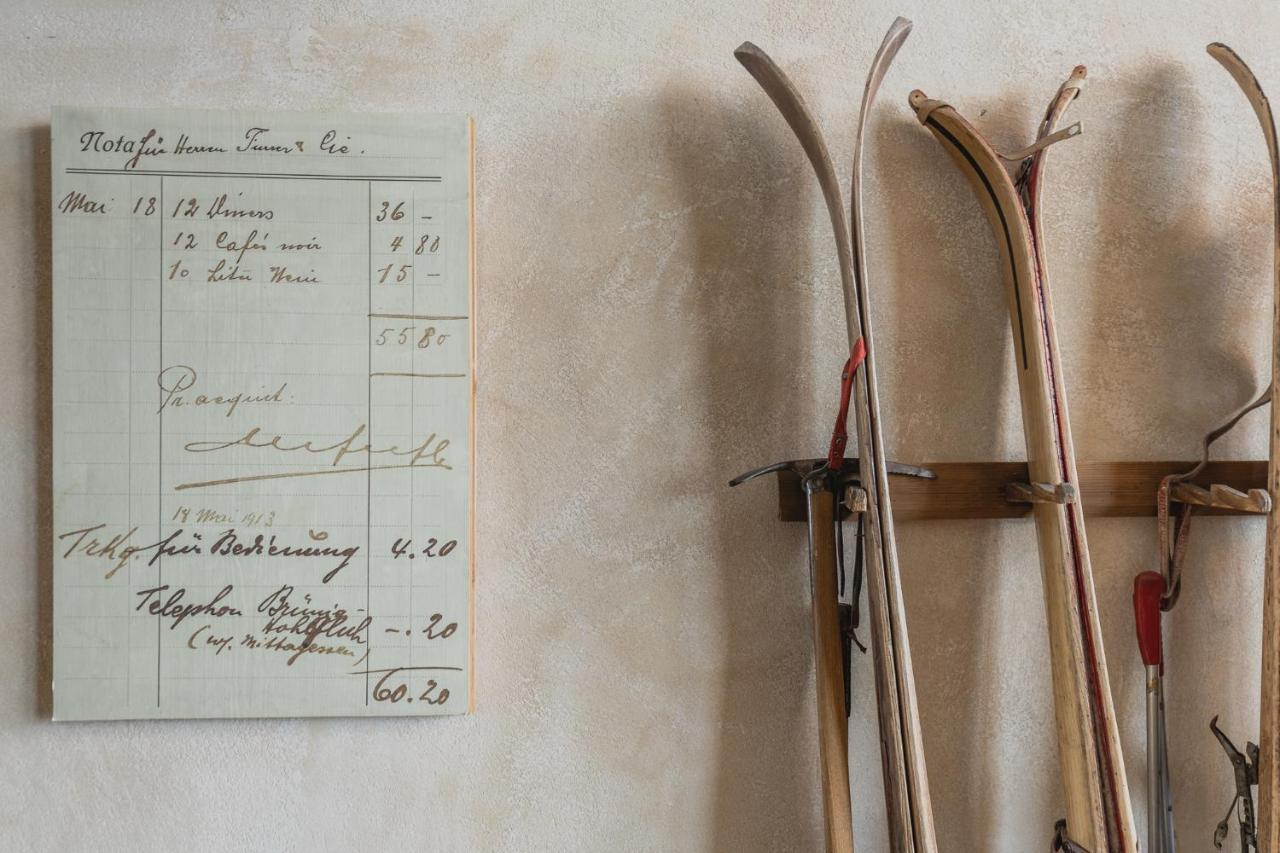 Nota für Herren & Cie.
Mai 18 12 Diners 36 –
12 Cafés noir 4 80
10 Liter Wein 15 –
55 80
Pr. acquit:
18 Mai 1913
Trkg. für Bedienung 4.20
Telephon Brünig-
Hohfluh –.20
(w. Mittagessen)
60.20